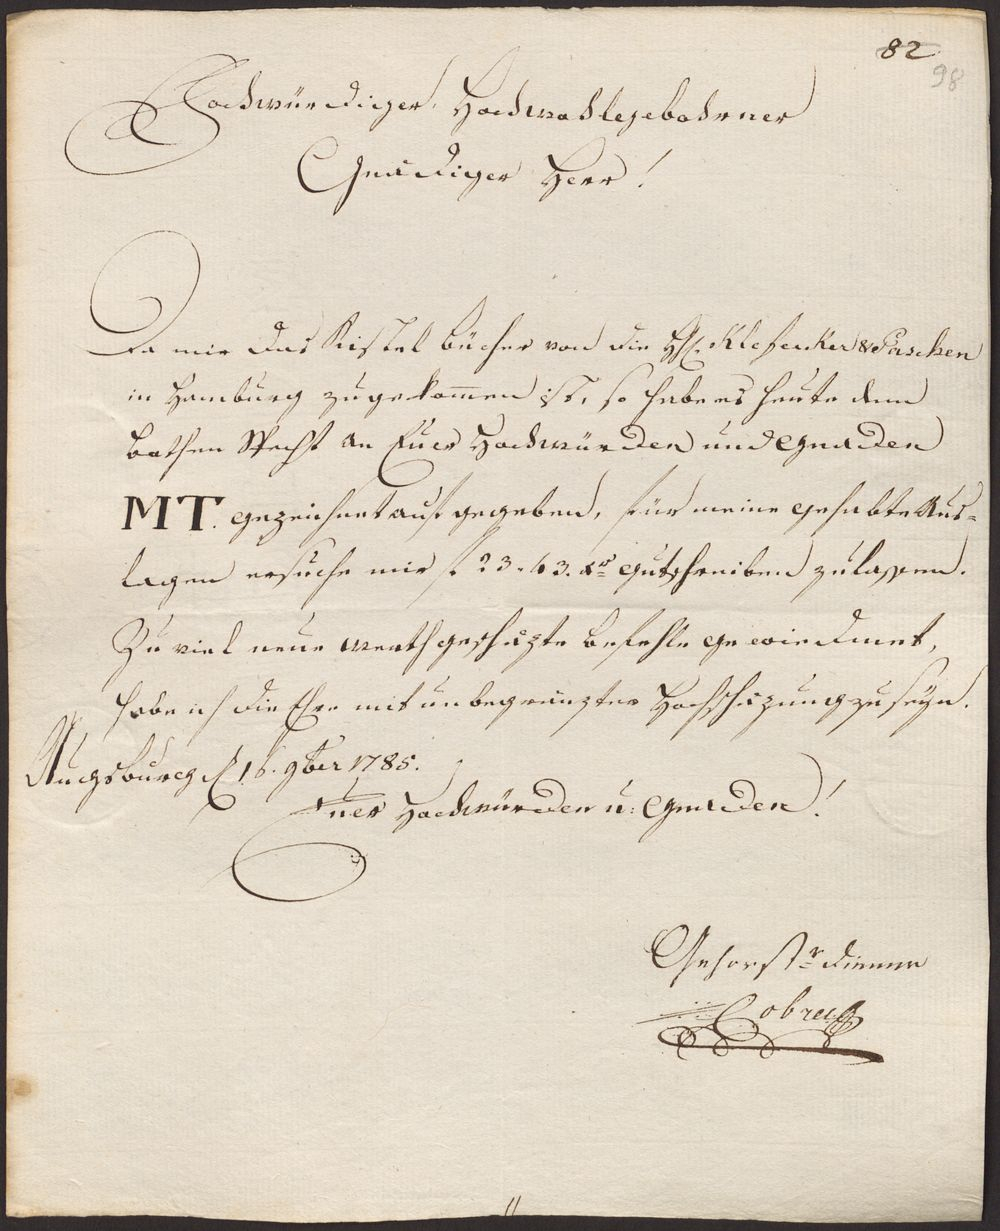 82
98
Hochwürdiger, Hochwohlgebohrner
Gnädiger Herr!
Da mir das Kistel bücher von die HH. Klefecker & Paschen
in Hamburg zugekommen ist, so habe es heute dem
bothen Specht an Euer Hochwürden und Gnaden
MT. gezeichnet aufgegeben, für meine gehabte Aus-
lagen ersuche mir f 23.43. xr gutschreiben zulassen.
Zu viel neue werthgeschäzte befehle gewiedmet,
habe ich die Ehre mit unbegränzter Hochschäzung zu seyn.
Augsburg d 16. 9ber 1785.
Euer Hochwürden u: Gnaden!
Gehorstr diener
Cobres